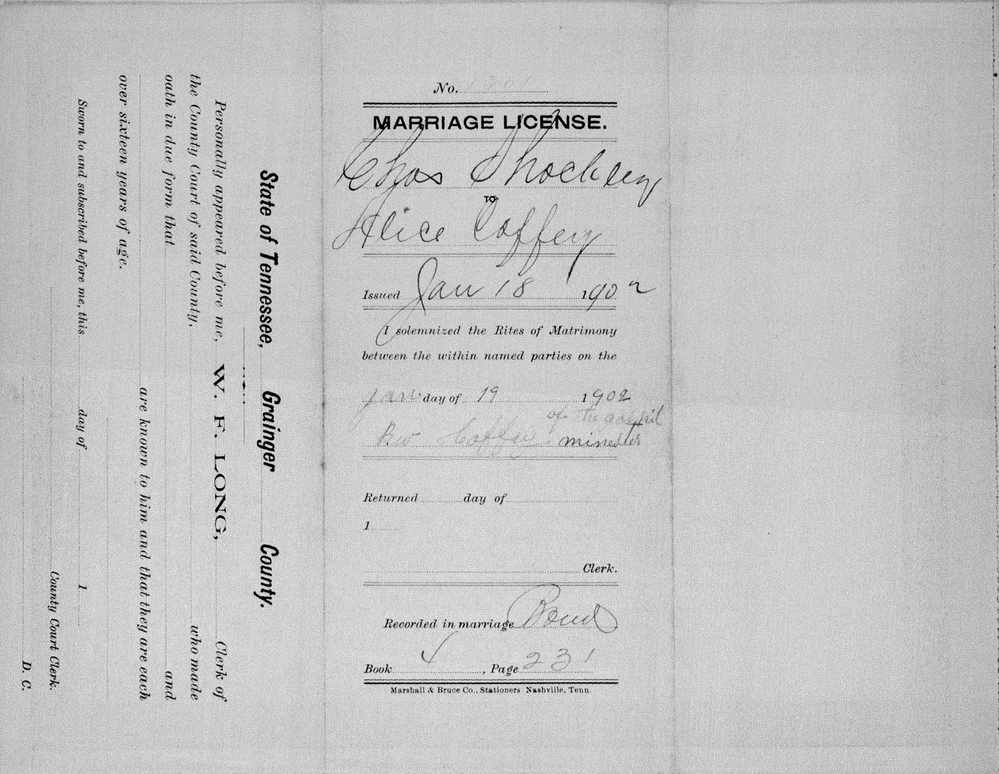 State of Tennessee, Grainger County.
Personally appeared before me, W. F. LONG, Clerk of
the County Court of said County, who made
oath in due form that and
are known to him and that they are each
over sixteen years of age.
Sworn to and subscribed before me, this day of 1
County Court Clerk.
D. C.
No.
MARRIAGE LICENSE.
Chas Shockley
TO
Alice Coffey
Issued Jan 18 1902
I solemnized the Rites of Matrimony
between the within named parties on the
Jan day of 19 1902
of the gospil
minester
Returned day of
1
Clerk.
Recorded in marriage Bond
Book , Page 231
Marshall & Bruce Co., Stationers Nashville, Tenn.